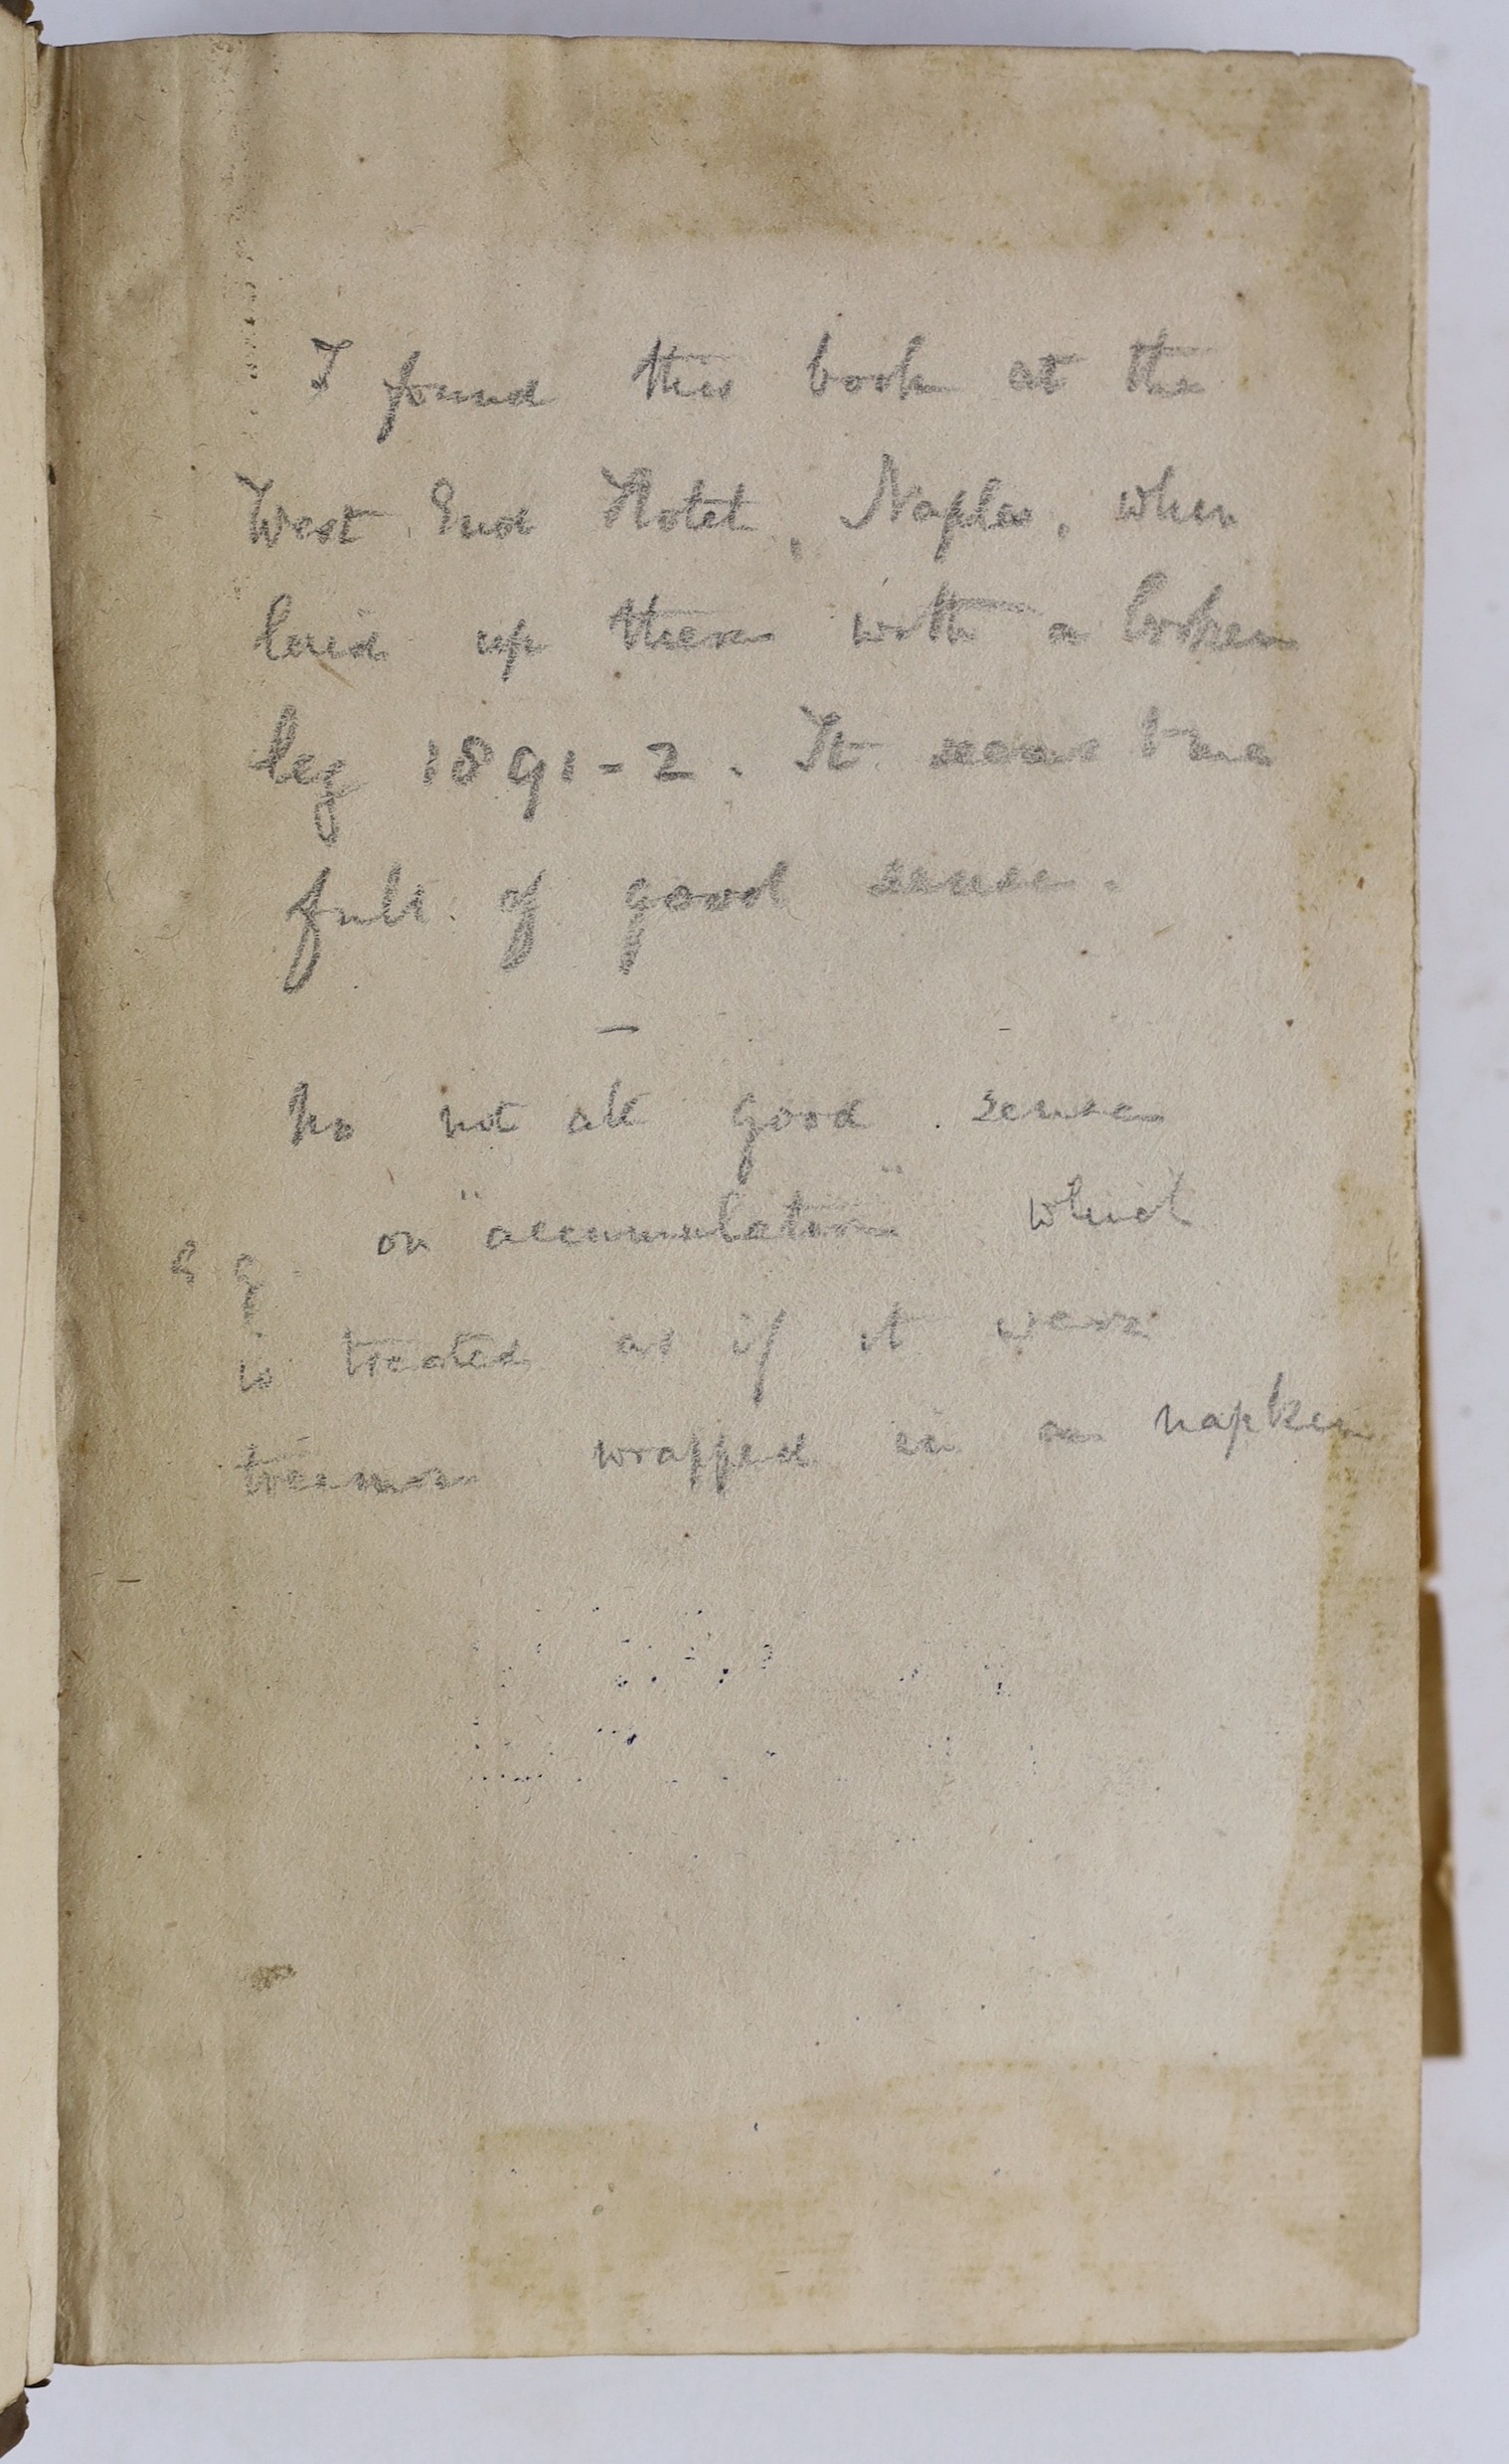 I found this book at the
West End Hotel, Naples, when
laid up there with a broken
leg 1891-2. It seems to me
full of good sense.
—
No not all good sense
e.g. on "accumulation" which
is treated as if it were
treasure wrapped in a napkin